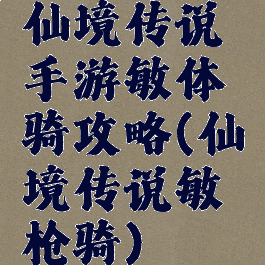 仙境传说
手游敏体
骑攻略(仙
境传说敏
枪骑)